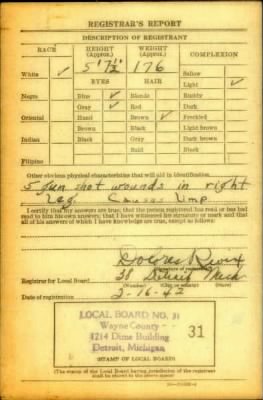 REGISTRAR'S REPORT
DESCRIPTION OF REGISTRANT
RACE HEIGHT (Approx.) WEIGHT (Approx.) COMPLEXION
White ✓ 5'7½" 176 Sallow
EYES HAIR Light ✓
Negro Blue ✓ Blonde Ruddy
Gray ✓ Red Dark
Oriental Hazel Brown ✓ Freckled
Brown Black Light brown
Indian Black Gray Dark brown
Bald Black
Filipino
Other obvious physical characteristics that will aid in identification
5 gun shot wounds in right
Leg. Causes limp
I certify that my answers are true; that the person registered has read or has had
read to him his own answers; that I have witnessed his signature or mark and that
all of his answers of which I have knowledge are true, except as follows:
Dolores
(Signature of registrar)
Registrar for Local Board 38 Detroit Mich
(Number) (City or county) (State)
Date of registration 2-16-42
LOCAL BOARD NO. 31
Wayne County
4214 Dime Building
Detroit, Michigan
31
(STAMP OF LOCAL BOARD)
(The stamp of the Local Board having jurisdiction of the registrant
shall be placed in the above space)